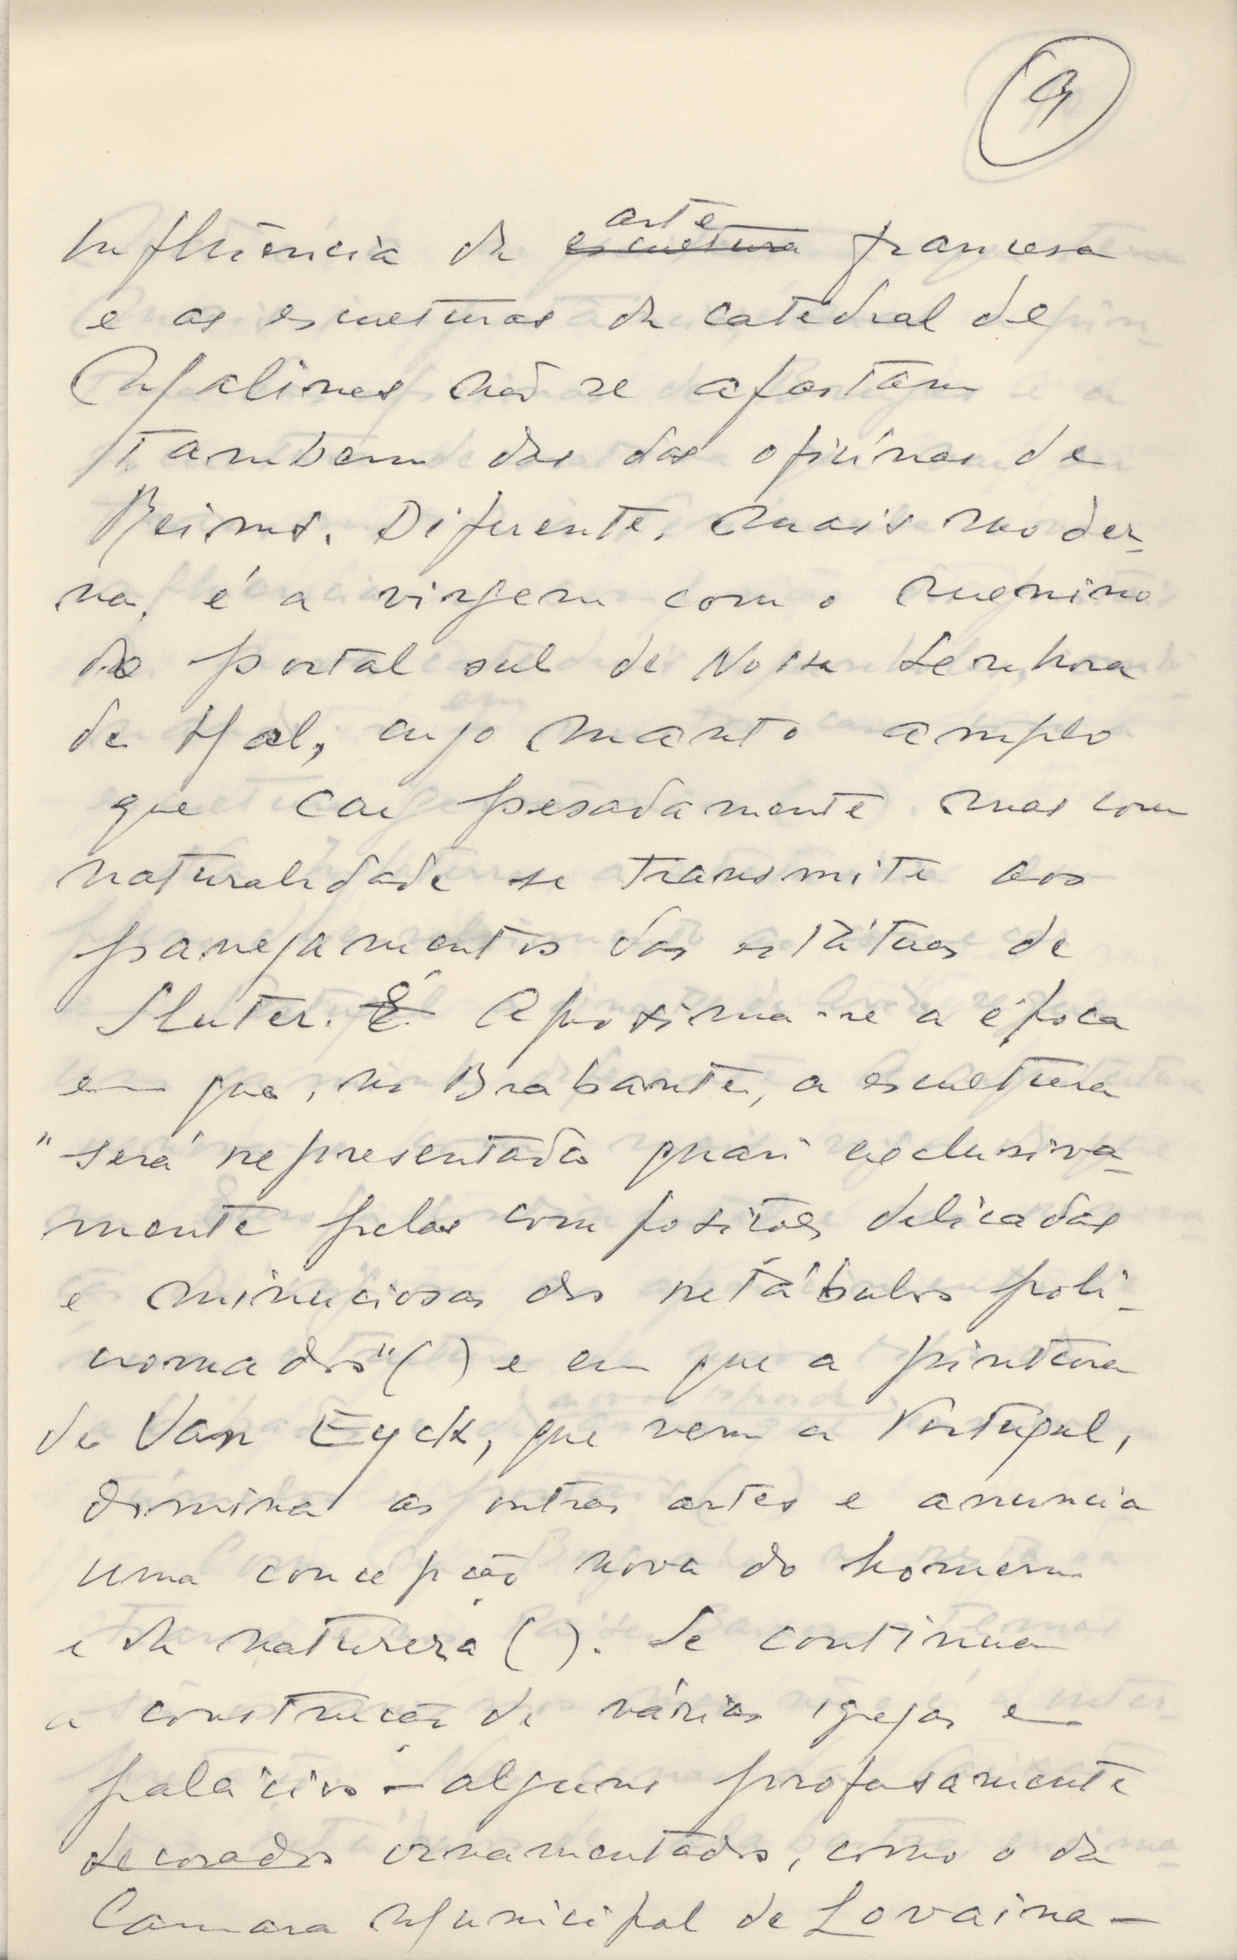 9
influência da escultura arte francesa
e as esculturas da catedral de
Malines não se afastam
tambem das das oficinas de
Reims. Diferente, mais moder-
na, é a virgem com o menino
do portal sul de Nossa Senhora
de Hal, cujo manto amplo
que cai pesadamente mas com
naturalidade se transmite aos
panejamentos das estátuas de
Sluter. É Aproxima-se a época
em que, no Brabante, a escultura
"será representada quasi exclusiva-
mente pelas composições delicadas
e minuciosas dos retábulos poli-
cromados" ( ) e em que a pintura
de Van Eyck, que vem a Portugal,
domina as outras artes e anuncia
uma concepção nova do homem
e da natureza ( ). Se continua
a construção de várias igrejas e
palácios - alguns profusamente
decorados ornamentados, como o da
Camara Municipal de Lovaina -